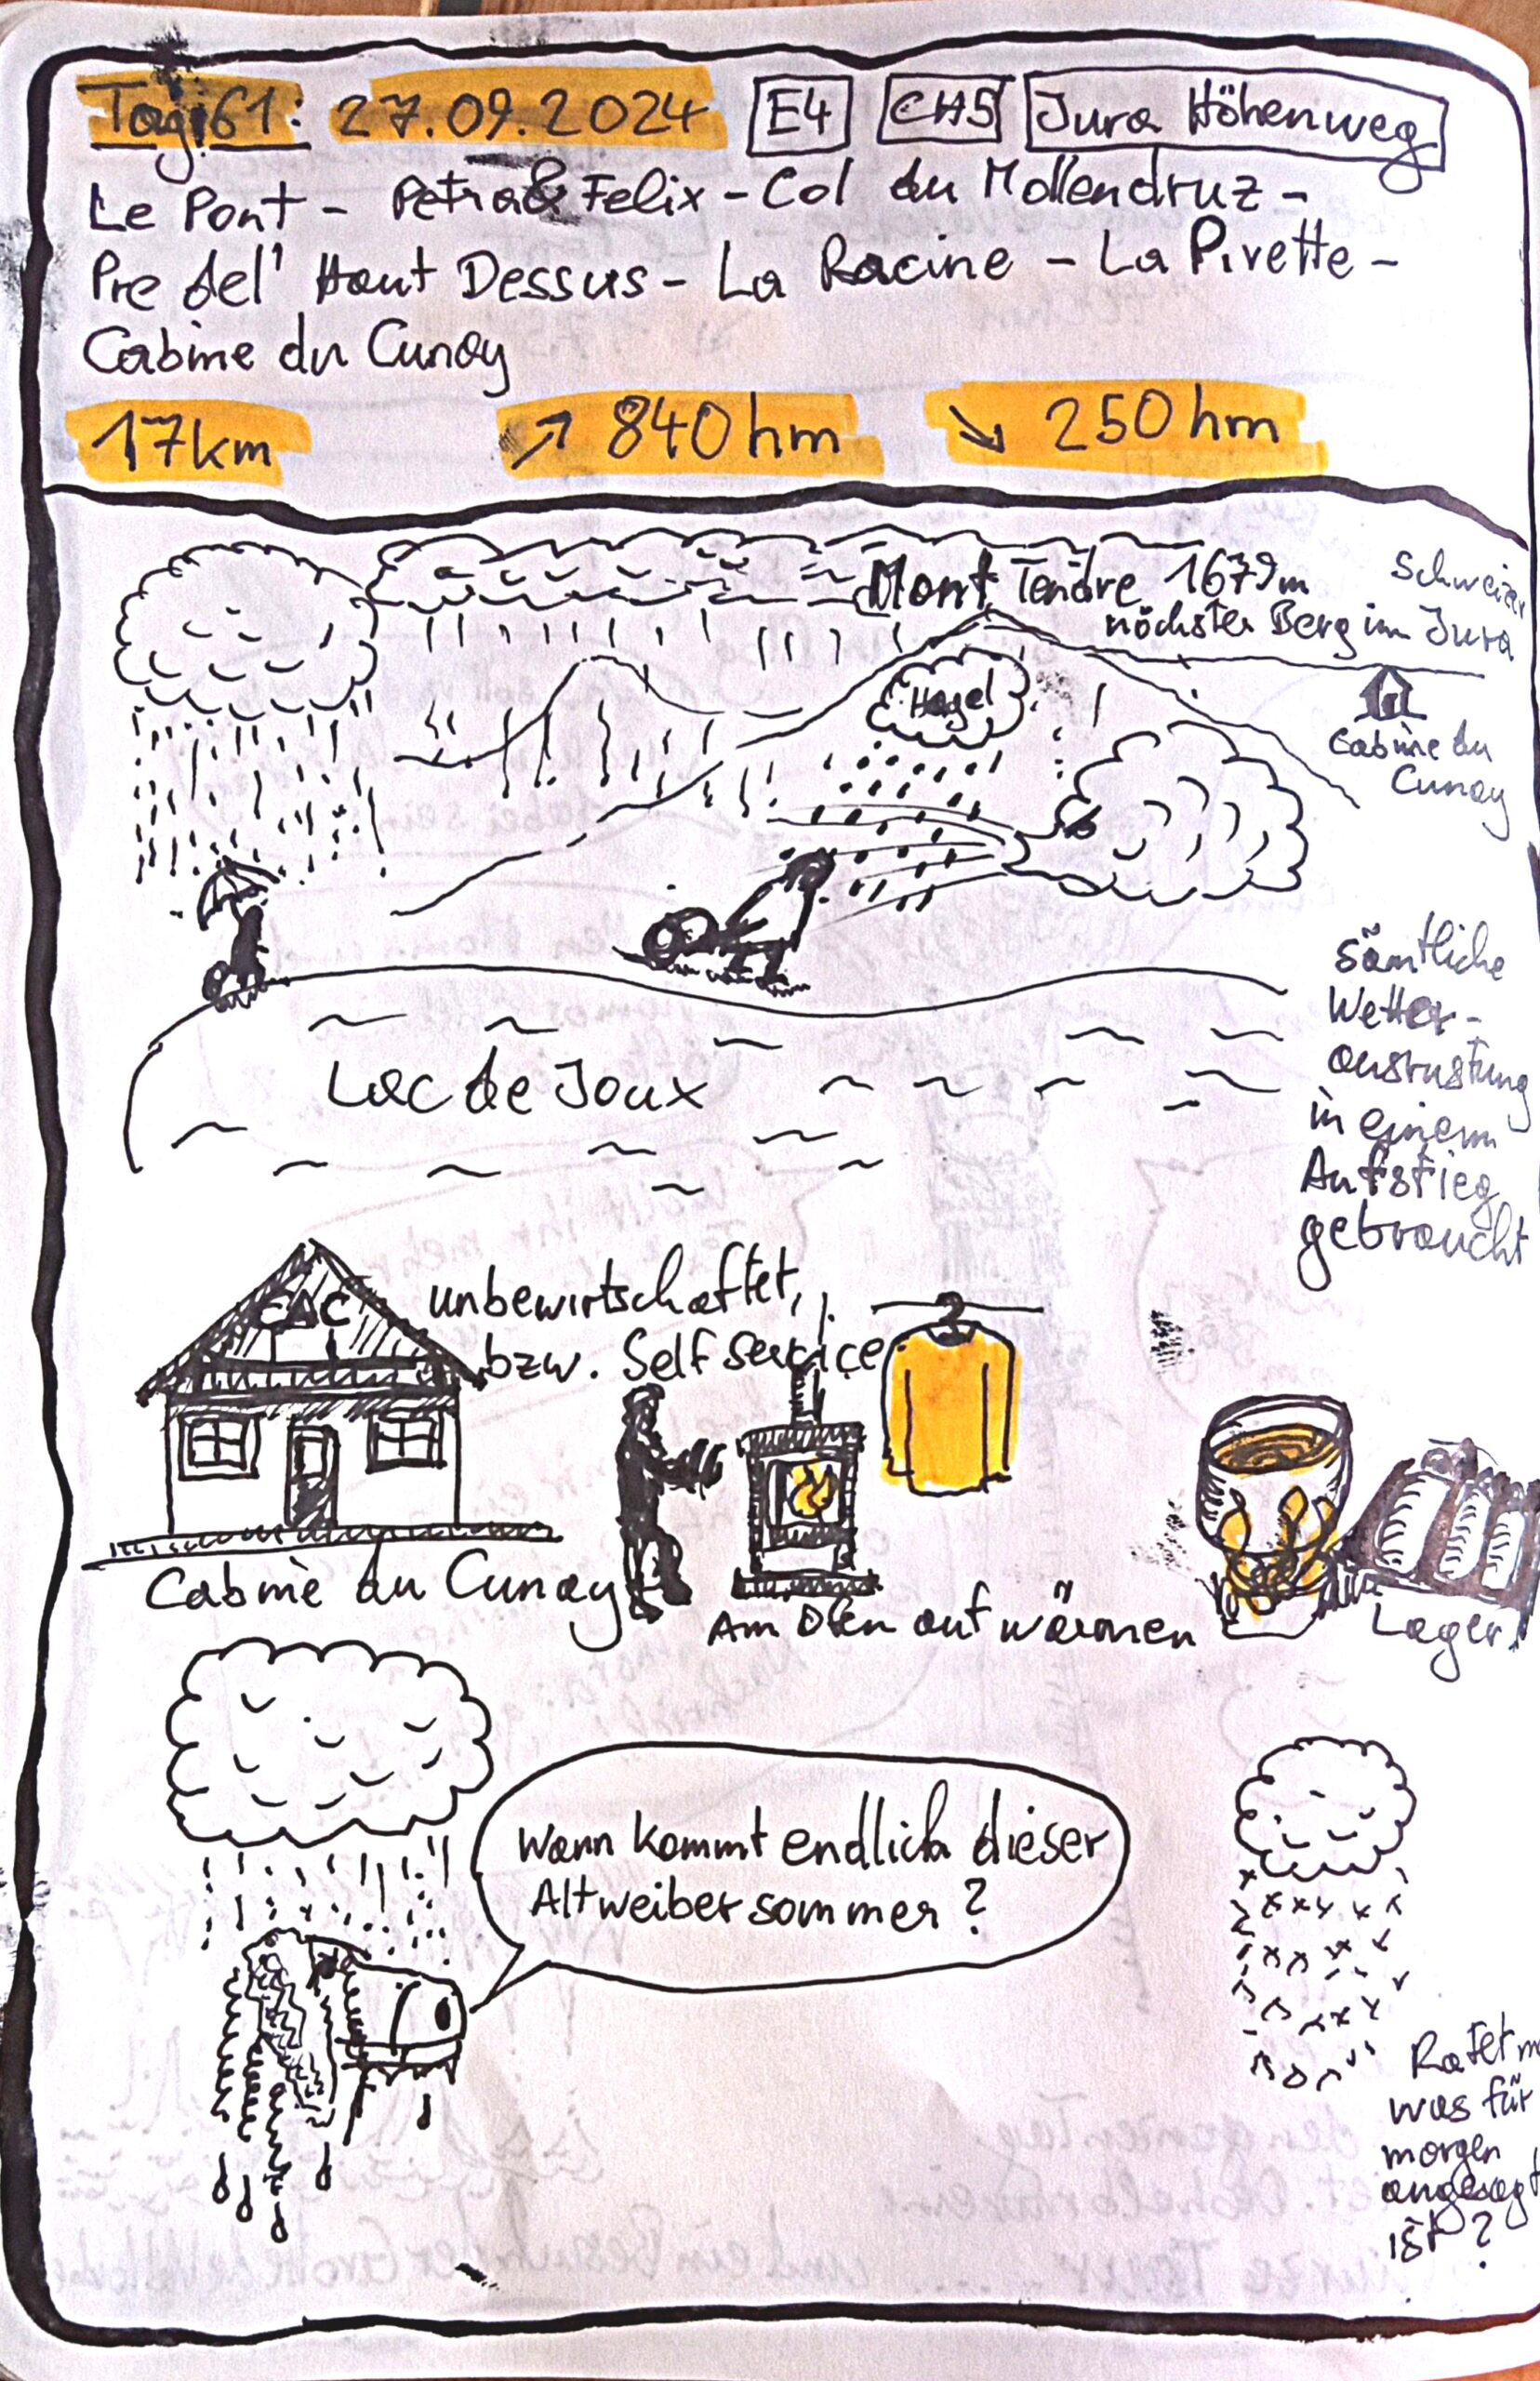 Tag 61: 27.09.2024 E4 CH5 Jura Höhenweg
Le Pont - Petra & Felix - Col du Mollendruz -
Pre del' Haut Dessus - La Racine - La Pivette -
Cabine du Cunay
17km ↗ 840hm ↘ 250hm
Mont Tendre 1679m
Schweizer
höchster Berg im Jura
Hagel
Cabine du
Cunay
sämtliche
Wetter-
ausrüstung
in einem
Aufstieg
gebraucht
Lac de Joux
CAC
unbewirtschaftet,
bzw. Self service
Cabine du Cunay
Am Ofen aufwärmen
Lager
Wann kommt endlich dieser
Altweibersommer?
Ratet
was für
morgen
angesagt
ist?